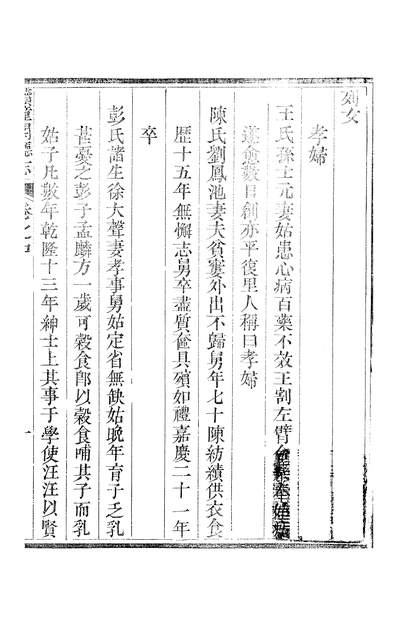 列女
孝婦
王氏孫士元妻姑患心病百藥不效王割左臂
遂愈數日創亦平復里人稱曰孝婦
陳氏劉鳳池妻夫貧寠外出不歸舅年七十陳紡績供衣食
歷十五年無懈志舅卒盡質奩具殯如禮嘉慶二十一年
卒
彭氏諸生徐大聲妻孝事舅姑定省無缺姑晚年育子乏乳
甚憂之彭子孟麟方一歲可穀食即以穀食哺其子而乳
姑子凡數年乾隆十三年紳士上其事于學使汪汪以賢
卷之
一